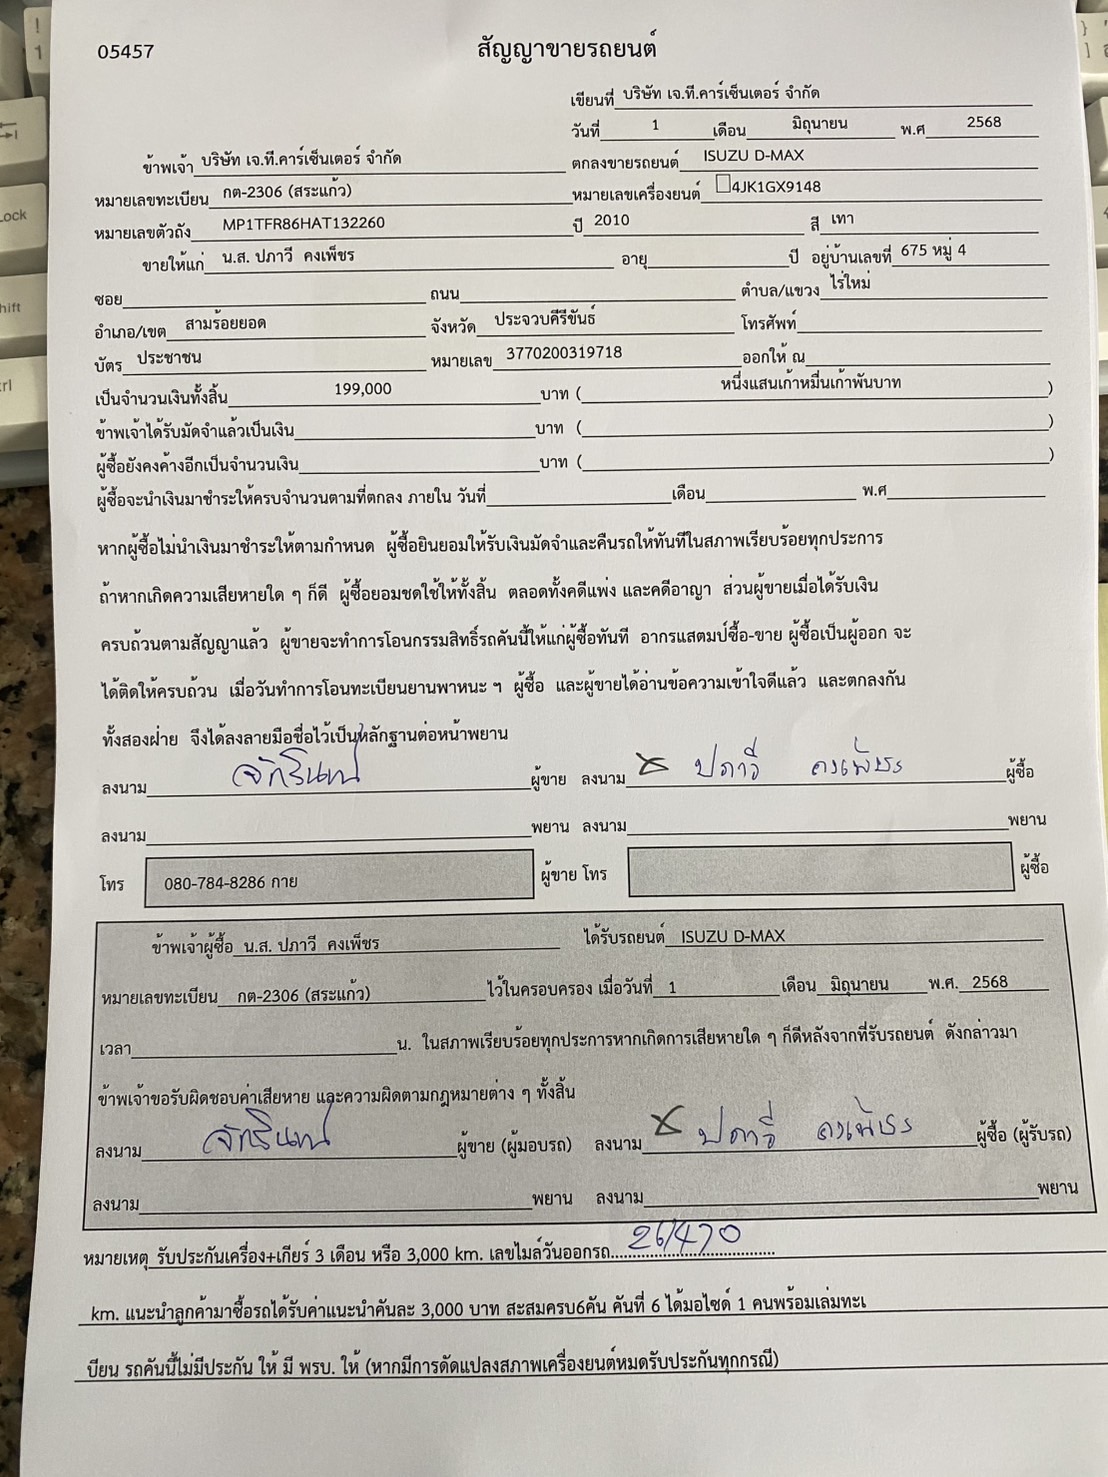 05457
สัญญาขายรถยนต์
เขียนที่ บริษัท เจ.ที.คาร์เซ็นเตอร์ จำกัด
วันที่ 1 เดือน มิถุนายน พ.ศ 2568
ข้าพเจ้า บริษัท เจ.ที.คาร์เซ็นเตอร์ จำกัด ตกลงขายรถยนต์ ISUZU D-MAX
หมายเลขทะเบียน กต-2306 (สระแก้ว) หมายเลขเครื่องยนต์ 4JK1GX9148
หมายเลขตัวถัง MP1TFR86HAT132260 ปี 2010 สี เทา
ขายให้แก่ น.ส. ปภาวี คงเพ็ชร อายุ ปี อยู่บ้านเลขที่ 675 หมู่ 4
ซอย ถนน ตำบล/แขวง ไร่ใหม่
อำเภอ/เขต สามร้อยยอด จังหวัด ประจวบคีรีขันธ์ โทรศัพท์
บัตร ประชาชน หมายเลข 3770200319718 ออกให้ ณ
เป็นจำนวนเงินทั้งสิ้น 199,000 บาท ( หนึ่งแสนเก้าหมื่นเก้าพันบาท )
ข้าพเจ้าได้รับมัดจำแล้วเป็นเงิน บาท ( )
ผู้ซื้อยังคงค้างอีกเป็นจำนวนเงิน บาท ( )
ผู้ซื้อจะนำเงินมาชำระให้ครบจำนวนตามที่ตกลง ภายใน วันที่ เดือน พ.ศ
หากผู้ซื้อไม่นำเงินมาชำระให้ตามกำหนด ผู้ซื้อยินยอมให้รับเงินมัดจำและคืนรถให้ทันทีในสภาพเรียบร้อยทุกประการ
ถ้าหากเกิดความเสียหายใด ๆ ก็ดี ผู้ซื้อยอมชดใช้ให้ทั้งสิ้น ตลอดทั้งคดีแพ่ง และคดีอาญา ส่วนผู้ขายเมื่อได้รับเงิน
ครบถ้วนตามสัญญาแล้ว ผู้ขายจะทำการโอนกรรมสิทธิ์รถคันนี้ให้แก่ผู้ซื้อทันที อากรแสตมป์ซื้อ-ขาย ผู้ซื้อเป็นผู้ออก จะ
ได้ติดให้ครบถ้วน เมื่อวันทำการโอนทะเบียนยานพาหนะ ฯ ผู้ซื้อ และผู้ขายได้อ่านข้อความเข้าใจดีแล้ว และตกลงกัน
ทั้งสองฝ่าย จึงได้ลงลายมือชื่อไว้เป็นหลักฐานต่อหน้าพยาน
ลงนาม จักรินทร์ ผู้ขาย ลงนาม ปภาวี คงเพ็ชร ผู้ซื้อ
ลงนาม พยาน ลงนาม พยาน
โทร 080-784-8286 กาย ผู้ขาย โทร ผู้ซื้อ
ข้าพเจ้าผู้ซื้อ น.ส. ปภาวี คงเพ็ชร ได้รับรถยนต์ ISUZU D-MAX
หมายเลขทะเบียน กต-2306 (สระแก้ว) ไว้ในครอบครอง เมื่อวันที่ 1 เดือน มิถุนายน พ.ศ. 2568
เวลา น. ในสภาพเรียบร้อยทุกประการหากเกิดการเสียหายใด ๆ ก็ดีหลังจากที่รับรถยนต์ ดังกล่าวมา
ข้าพเจ้าขอรับผิดชอบค่าเสียหาย และความผิดตามกฎหมายต่าง ๆ ทั้งสิ้น
ลงนาม จักรินทร์ ผู้ขาย (ผู้มอบรถ) ลงนาม ปภาวี คงเพ็ชร ผู้ซื้อ (ผู้รับรถ)
ลงนาม พยาน ลงนาม พยาน
หมายเหตุ รับประกันเครื่อง+เกียร์ 3 เดือน หรือ 3,000 km. เลขไมล์วันออกรถ
km. แนะนำลูกค้ามาซื้อรถได้รับค่าแนะนำคันละ 3,000 บาท สะสมครบ6คัน คันที่ 6 ได้มอไซด์ 1 คนพร้อมเล่มทะเ
บียน รถคันนี้ไม่มีประกัน ให้ มี พรบ. ให้ (หากมีการดัดแปลงสภาพเครื่องยนต์หมดรับประกันทุกกรณี)